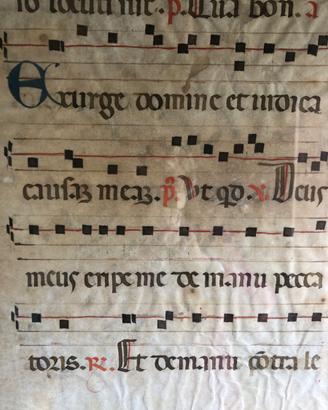 io locuti me. p. Qua bon. a
Exurge domine et iudica
causaz meaz. p. Vt qd. x. Deus
meus eripe me de manu pecca
toris. R. Et de manu cōtra le